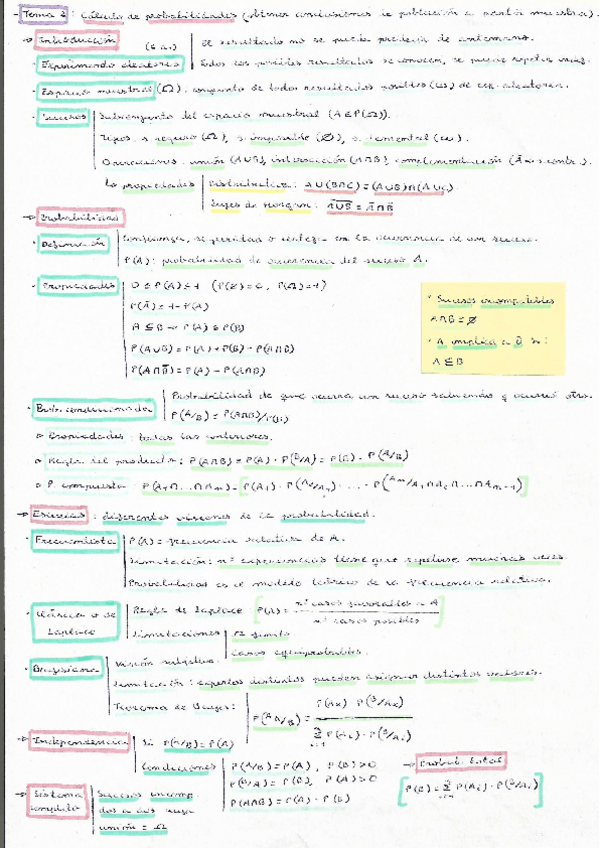 - Tema 2: Cálculo de probabilidades (obtener conclusiones de población a partir muestra).
→ Introducción
· Experimento aleatorio (e.a.) | El resultado no se puede predecir de antemano.
Todos los posibles resultados se conocen, se puede repetir
· Espacio muestral (Ω): conjunto de todos resultados posibles (ω) de exp. aleatorio.
· Sucesos | Subconjunto del espacio muestral (A∈P(Ω)).
Tipos: s. seguro (Ω), s. imposible (∅), s. elemental (ω).
Operaciones: unión (A∪B), intersección (A∩B), complementación
↳ propiedades | Distributiva: A∪(B∩C) = (A∪B)∩(A∪C)
Leyes de Morgan:
→ Probabilidad
· Definición | Confianza, seguridad o certeza en la ocurrencia de un suceso.
P(A): probabilidad de ocurrencia del suceso A.
· Propiedades | 0 ≤ P(A) ≤ 1 (P(∅)=0, P(Ω)=1)
P(Ā) = 1 - P(A)
A ⊆ B → P(A) ≤ P(B)
P(A∪B) = P(A) + P(B) - P(A∩B)
P(A∩B̄) = P(A) - P(A∩B)
* Sucesos incompatibles
A∩B = ∅
* A implica a B si:
A ⊆ B
· Prob. condicionada | Probabilidad de que ocurra un suceso sabiendo q ocurrió otro.
P(A/B) = P(A∩B)/P(B)
▫ Propiedades: todas las anteriores.
▫ Regla del producto: P(A∩B) = P(A) · P(B/A) = P(B) · P(A/B)
▫ P. compuesta P(A₁∩...∩Aₙ) = P(A₁) · P(A₂/A₁) · ... · P(Aₙ/A₁∩A₂∩...∩Aₙ₋₁)
→ Escuelas: diferentes visiones de la probabilidad.
· Frecuentista | P(A) = frecuencia relativa de A.
Limitación: nº experiencias tiene que repetirse muchas veces.
Probabilidad es el modelo teórico de la frecuencia relativa.
· Clásica o de Laplace | Regla de Laplace P(A) = nº casos favorables a A / nº casos posibles
Limitaciones | Ω finito
Casos equiprobables.
· Bayesiana | Visión subjetiva.
Limitación: expertos distintos pueden asignar distintos valores.
Teorema de Bayes: P(Aₖ/B) = P(Aₖ) · P(B/Aₖ) / Σ P(Aᵢ) · P(B/Aᵢ)
→ Independencia | Si P(A/B) = P(A)
Condiciones | P(A/B) = P(A), P(B)>0
P(B/A) = P(B), P(A)>0
P(A∩B) = P(A) · P(B)
→ Probab. total
P(B) = Σ P(Aᵢ) · P(B/Aᵢ)
→ Sistema completo | Sucesos incomp. dos a dos cuya
unión = Ω